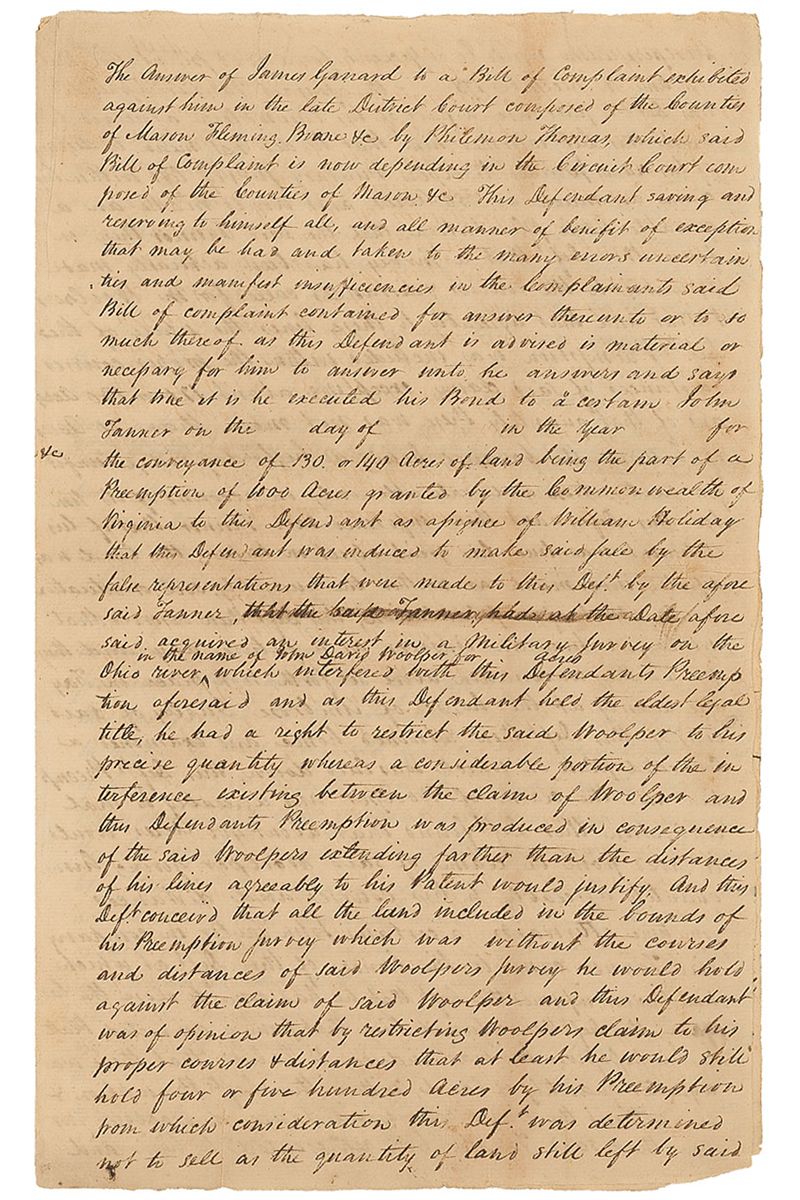 The Answer of James Garrard to a Bill of Complaint exhibited
against him in the late District Court composed of the Counties
of Mason Fleming, Brane &c by Philemon Thomas, which said
Bill of Complaint is now depending in the Circuit Court com
posed of the Counties of Mason &c This Defendant saving and
reserving to himself all, and all manner of benefit of exception
that may be had and taken to the many errors uncertain
ties and manifest insufficiencies in the Complainants said
Bill of complaint contained for answer thereunto or to so
much thereof as this Defendant is advised is material or
necessary for him to answer unto he answers and says
that true it is he executed his Bond to a certain John
Tanner on the day of in the Year for
&c
the conveyance of 130. or 140 Acres of land being the part of a
Preemption of 1000 Acres granted by the Commonwealth of
Virginia to this Defendant as assignee of William Holiday
that this Defendant was induced to make said sale by the
false representations that were made to this Deft. by the afore
said Tanner, that the Tanner, had at the Date afore
said acquired an interest in a Military Survey on the
in the name of John David Woolper for acres
Ohio river, which interfered with this Defendants Preemp
tion aforesaid and as this Defendant held the eldest legal
title, he had a right to restrict the said Woolper to his
precise quantity whereas a considerable portion of the in
terference existing between the claim of Woolper and
this Defendants Preemption was produced in consequence
of the said Woolpers extending farther than the distances
of his lines agreeably to his Patent would justify. And this
Deft. conceiv'd that all the land included in the bounds of
his Preemption Survey which was without the courses
and distances of said Woolpers Survey he would hold
against the claim of said Woolper and this Defendant
was of opinion that by restricting Woolpers claim to his
proper courses & distances that at least he would still
hold four or five hundred Acres by his Preemption
from which consideration this Deft. was determined
not to sell as the quantity of land still left by said